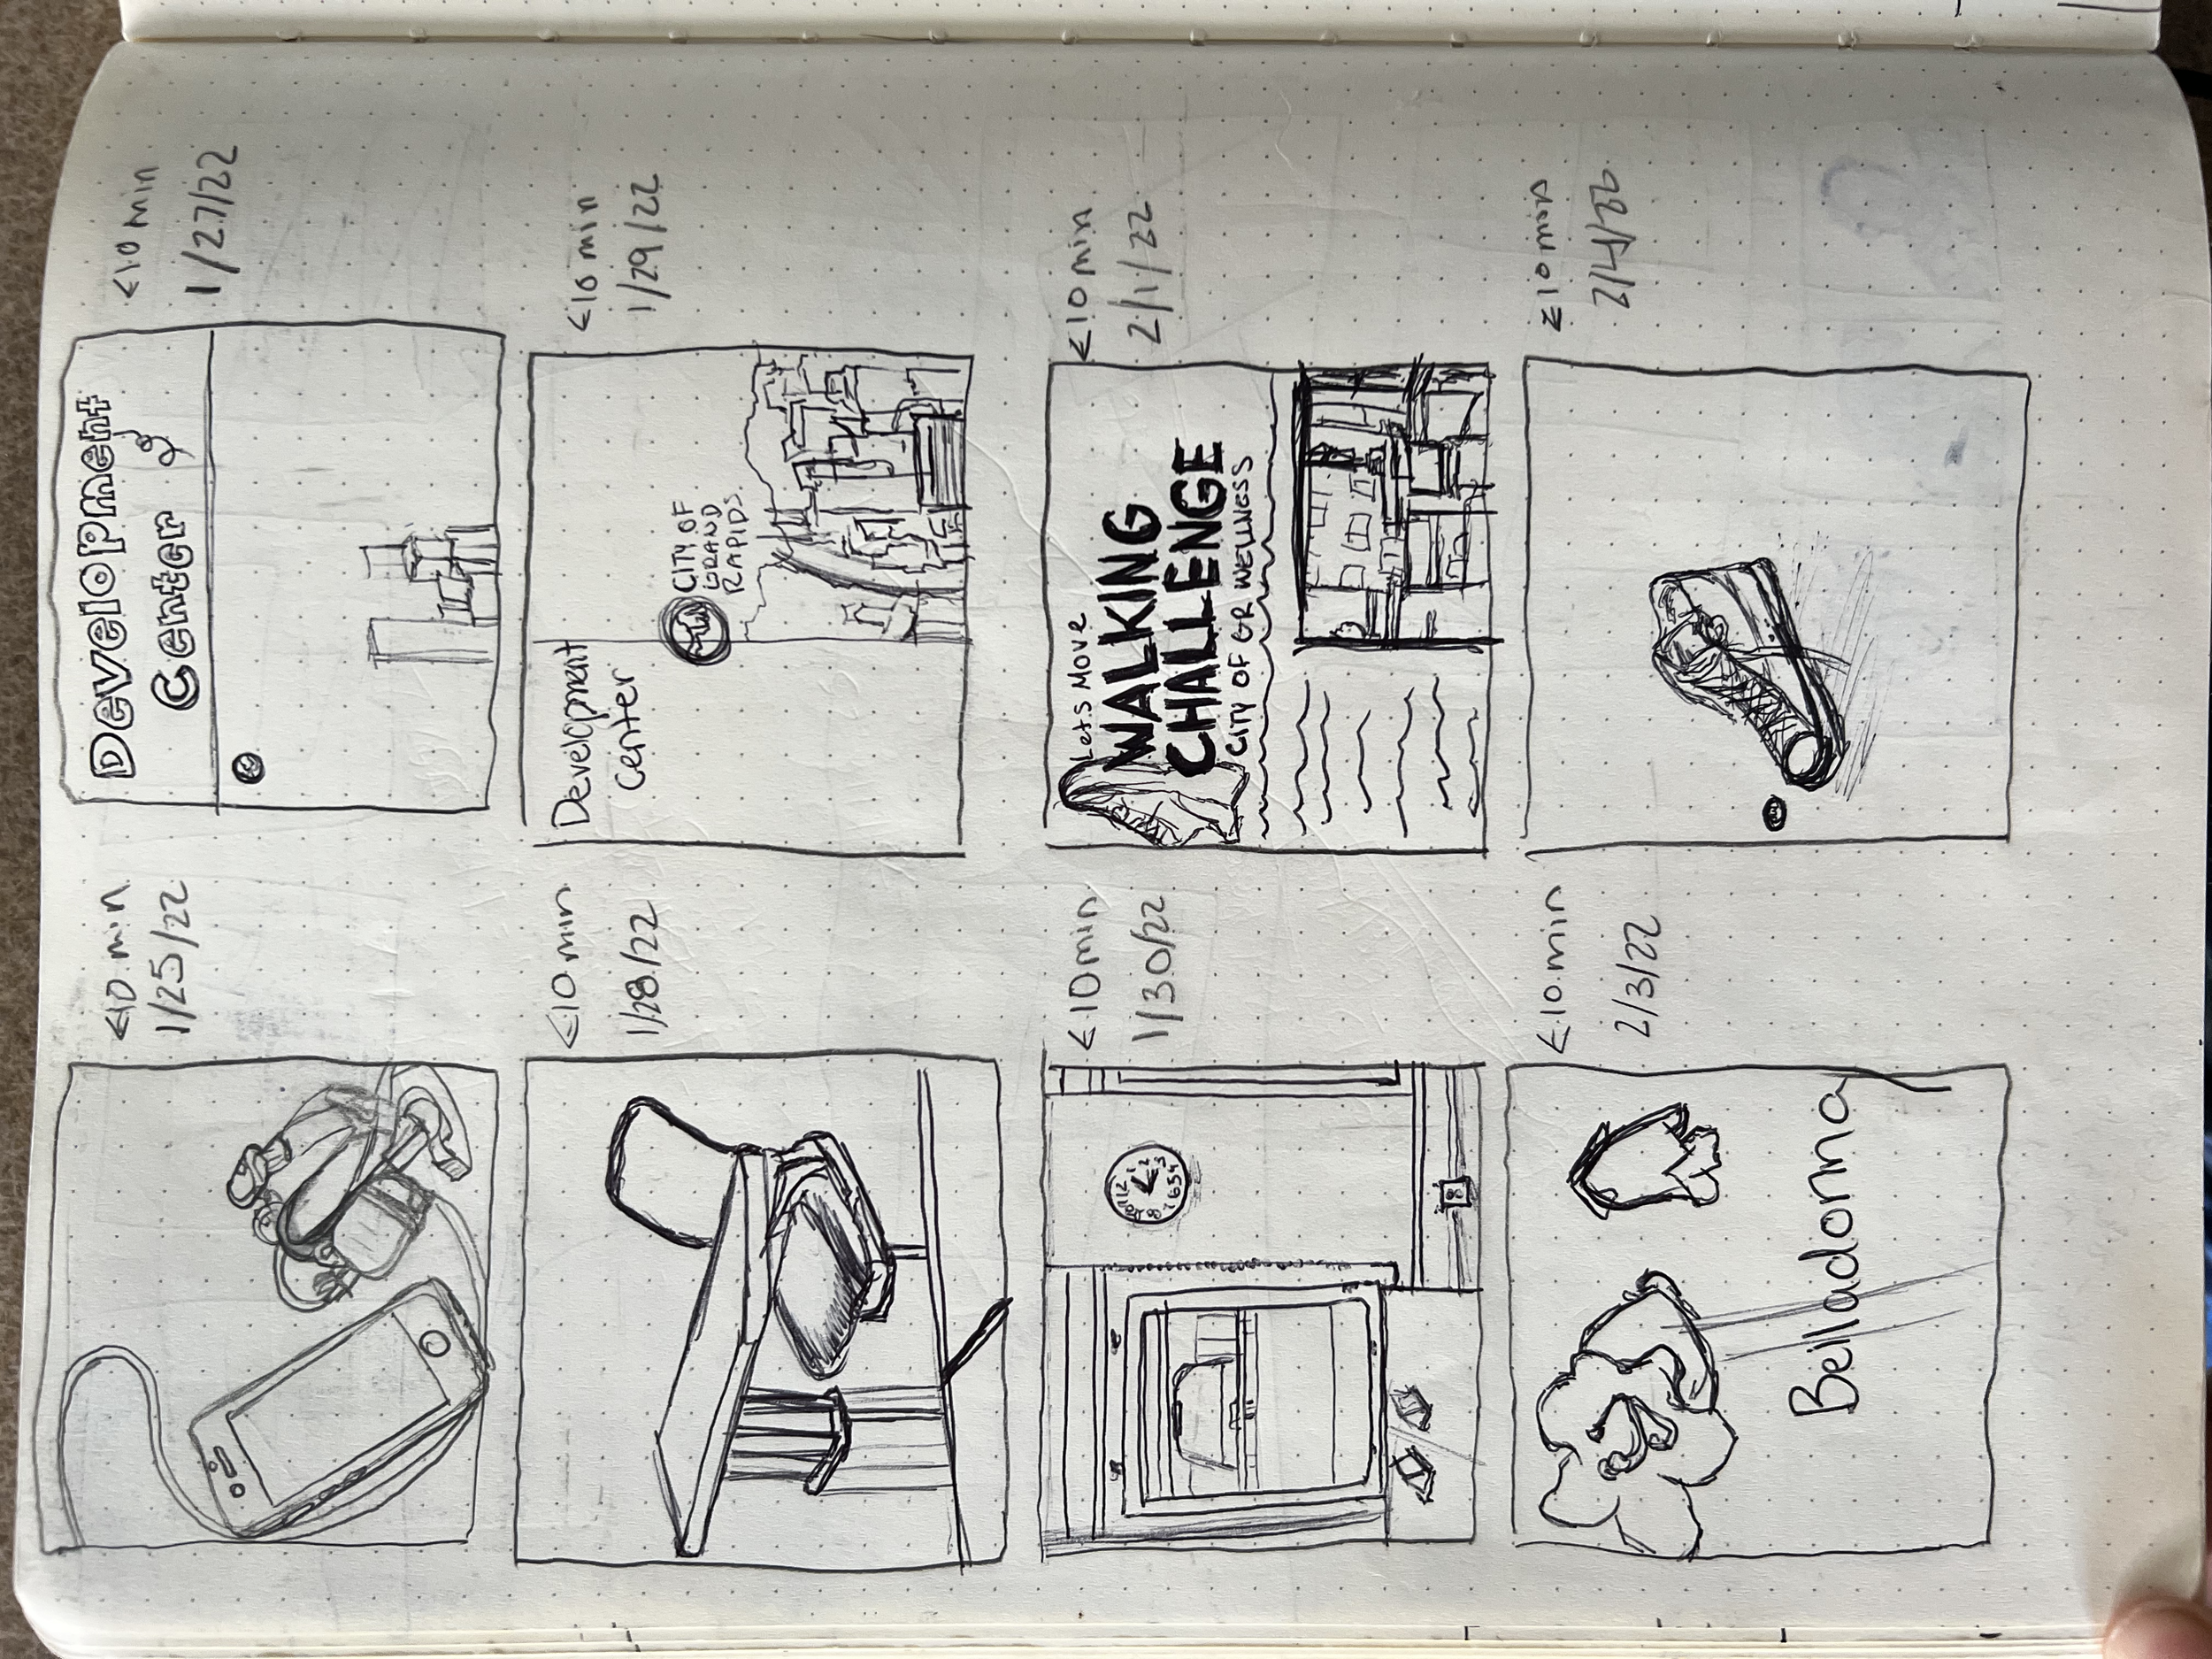 <10 min
1/25/22
Development
Center
<10 min
1/27/22
<10 min
1/28/22
Development
Center
CITY OF
GRAND
RAPIDS
<10 min
1/29/22
12
1
2
3
4
5
6
7
8
<10 min
1/30/22
Lets Move
WALKING
CHALLENGE
CITY OF GR WELLNESS
<10 min
2/1/22
Belladonna
<10 min
2/3/22
<10 min